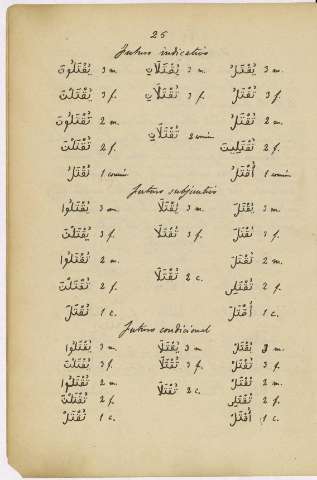 25
Futuro indicativo
يُقْتَلُ 3 m. يُقْتَلَانِ 3 m. يُقْتَلُونَ 3 m.
تُقْتَلُ 3 f. تُقْتَلَانِ 3 f. يُقْتَلْنَ 3 f.
تُقْتَلُ 2 m. تُقْتَلَانِ 2 comun تُقْتَلُونَ 2 m.
تُقْتَلِينَ 2 f. تُقْتَلْنَ 2 f.
أُقْتَلُ 1 comun نُقْتَلُ 1 comun
Futuro subjuntivo
يُقْتَلَ 3 m. يُقْتَلَا 3 m. يُقْتَلُوا 3 m.
تُقْتَلَ 3 f. تُقْتَلَا 3 f. يُقْتَلْنَ 3 f.
تُقْتَلَ 2 m. تُقْتَلَا 2 c. تُقْتَلُوا 2 m.
تُقْتَلِى 2 f. تُقْتَلْنَ 2 f.
أُقْتَلَ 1 c. نُقْتَلَ 1 c.
Futuro condicional
يُقْتَلْ 3 m. يُقْتَلَا 3 m يُقْتَلُوا 3 m.
تُقْتَلْ 3 f. تُقْتَلَا 3 f. يُقْتَلْنَ 3 f.
تُقْتَلْ 2 m. تُقْتَلَا 2 c. تُقْتَلُوا 2 m.
تُقْتَلِى 2 f. تُقْتَلْنَ 2 f.
أُقْتَلْ 1 c. نُقْتَلْ 1 c.